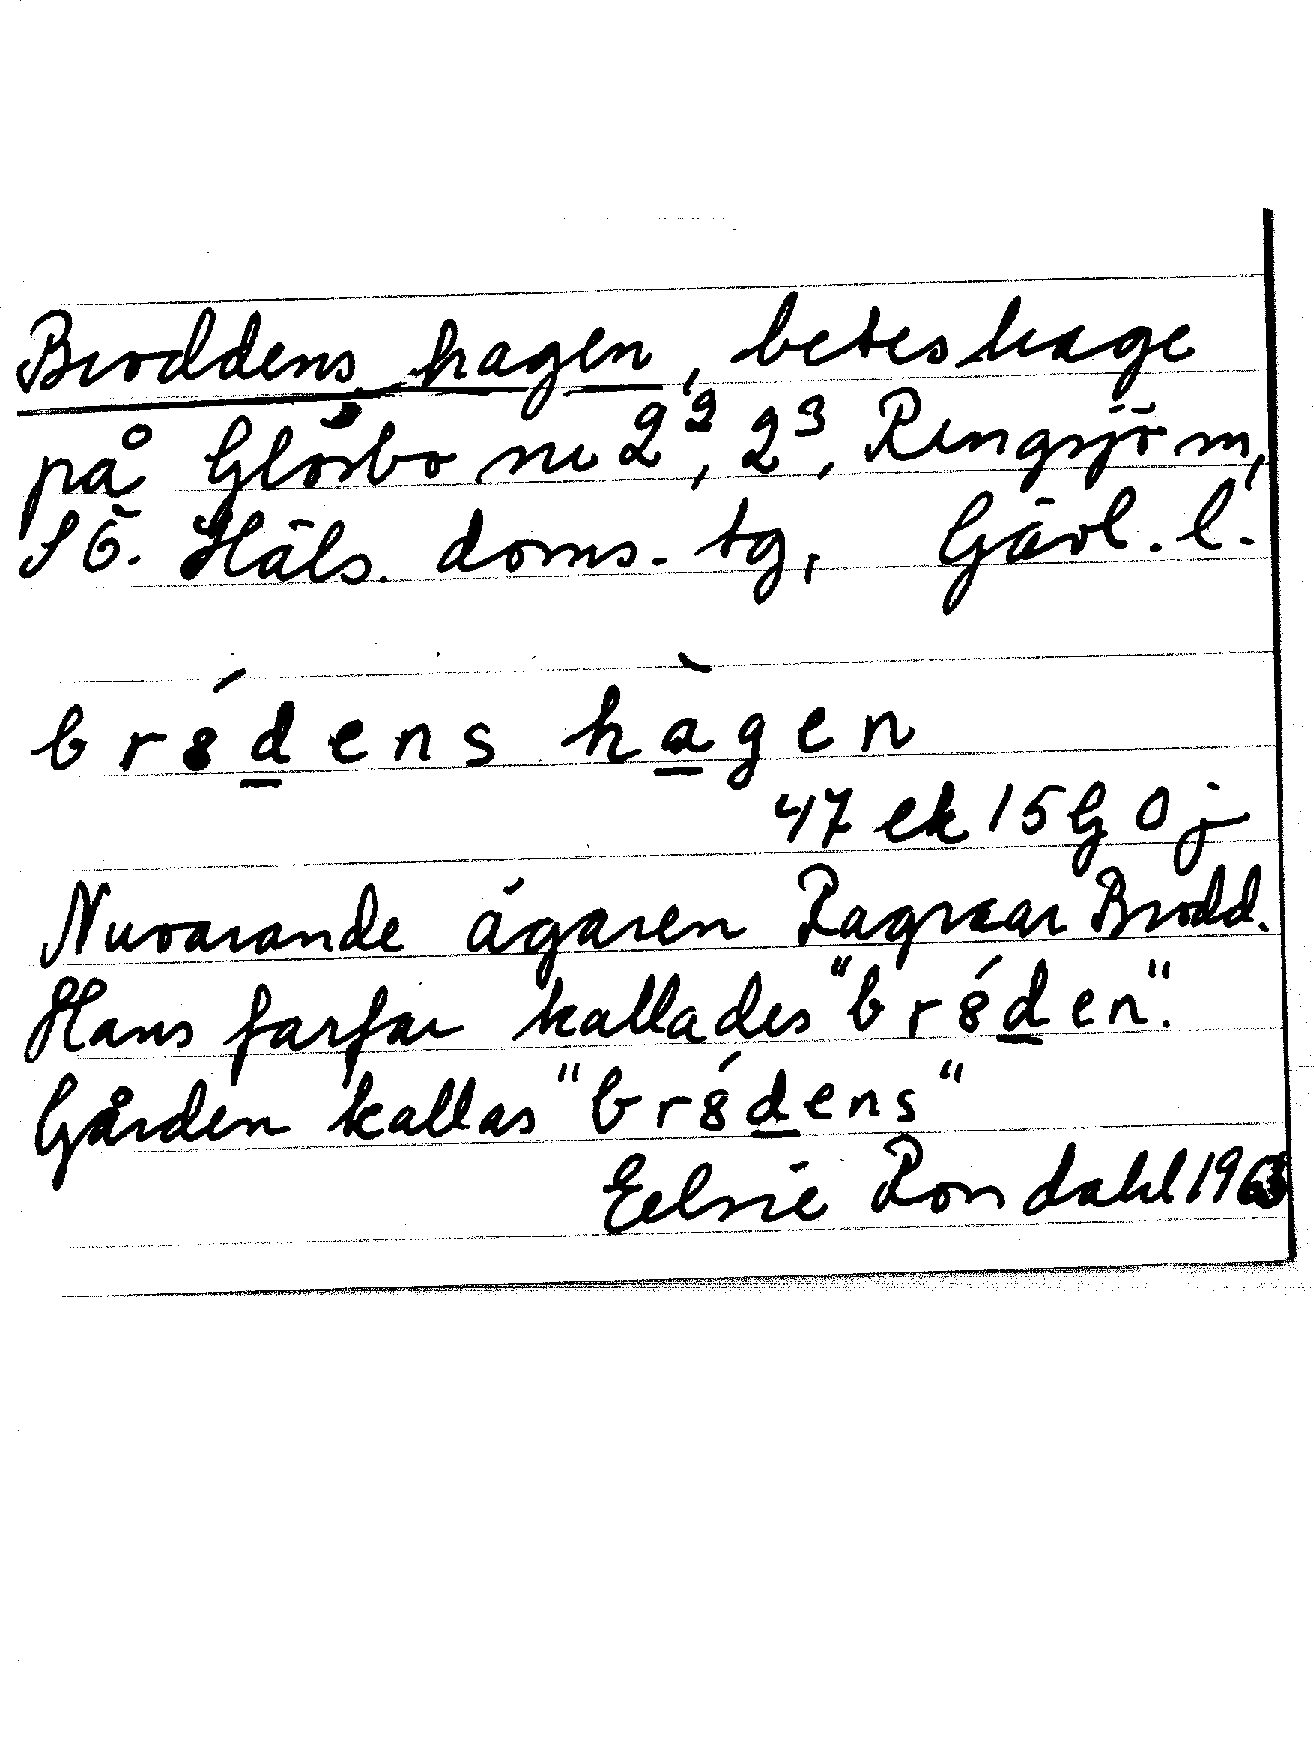 Broddens hagen, beteshage
på Glösbo nr 2², 2³, Rengsjö sn,
SÖ. Häls. doms. tg, Gävl. l.
br8́dens hàgen
47 ek 15 G 0 j
Nuvarande ägaren Ragnar Brodd.
Hans farfar kallades "br8́den".
Gården kallas "br8́dens"
Eelsie Rondahl 1963